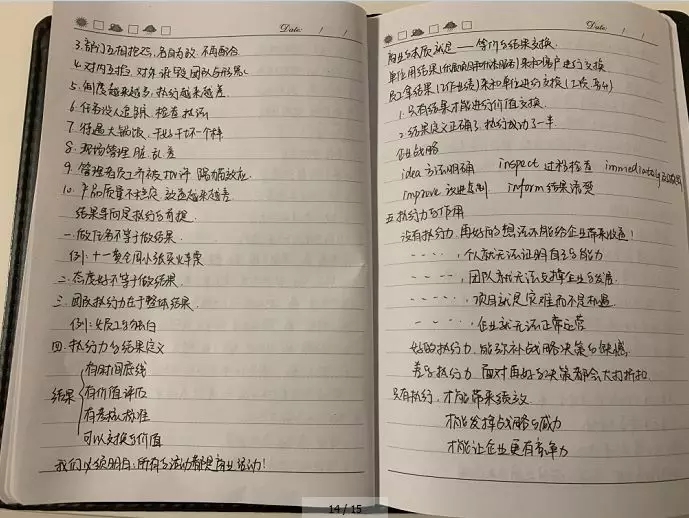 Date: / /
3.部门互相推诿,各自为政 不再配合
4.对内互掐 对外 诋毁团队与形象
5.制度越来越多,执行越来越差
6.任务没人追踪,检查 执行
7.待遇大锅饭,干与不干一个样
8.现场管理 脏 乱 差
9.管理者员工 效应
10.产品质量不稳定 效益越来越差
结果导向是执行的前提
一.做任务不等于做结果
例:十一黄金周小张买火车票
二.态度好不等于做结果
三.团队执行力在于整体结果
例:女员工的
四.执行力的结果定义
结果
有时间底线
有价值评估
有考核标准
可以交换的价值
我们必须明白:所有的活动都是商业活动!
Date: / /
商业的本质就是——等价的结果交换
单位用结果 来和客户进行交换
员工拿结果(工作业绩)来和单位进行交换(工资、奖金)
1.只有结果才能进行价值交换
2.结果定义正确了,执行成功了一半
企业战略
idea 方法明确 inspect 过程检查 immediately
improve 改进 inform 结果
五 执行力的作用
没有执行力,再好的想法不能给企业带来收益!
- - - -,个人就无法证明自己的能力
- - - - -,团队就无法支撑企业的发展
- - - - -,项目就是灾难而不是机遇
- - - -,企业就无法正常运营
好的执行力,能弥补战略决策的缺憾
差的执行力 面对再好的决策都会大打折扣
只有执行,才能带来绩效
才能发挥战略的威力
才能让企业更有竞争力
14 / 15